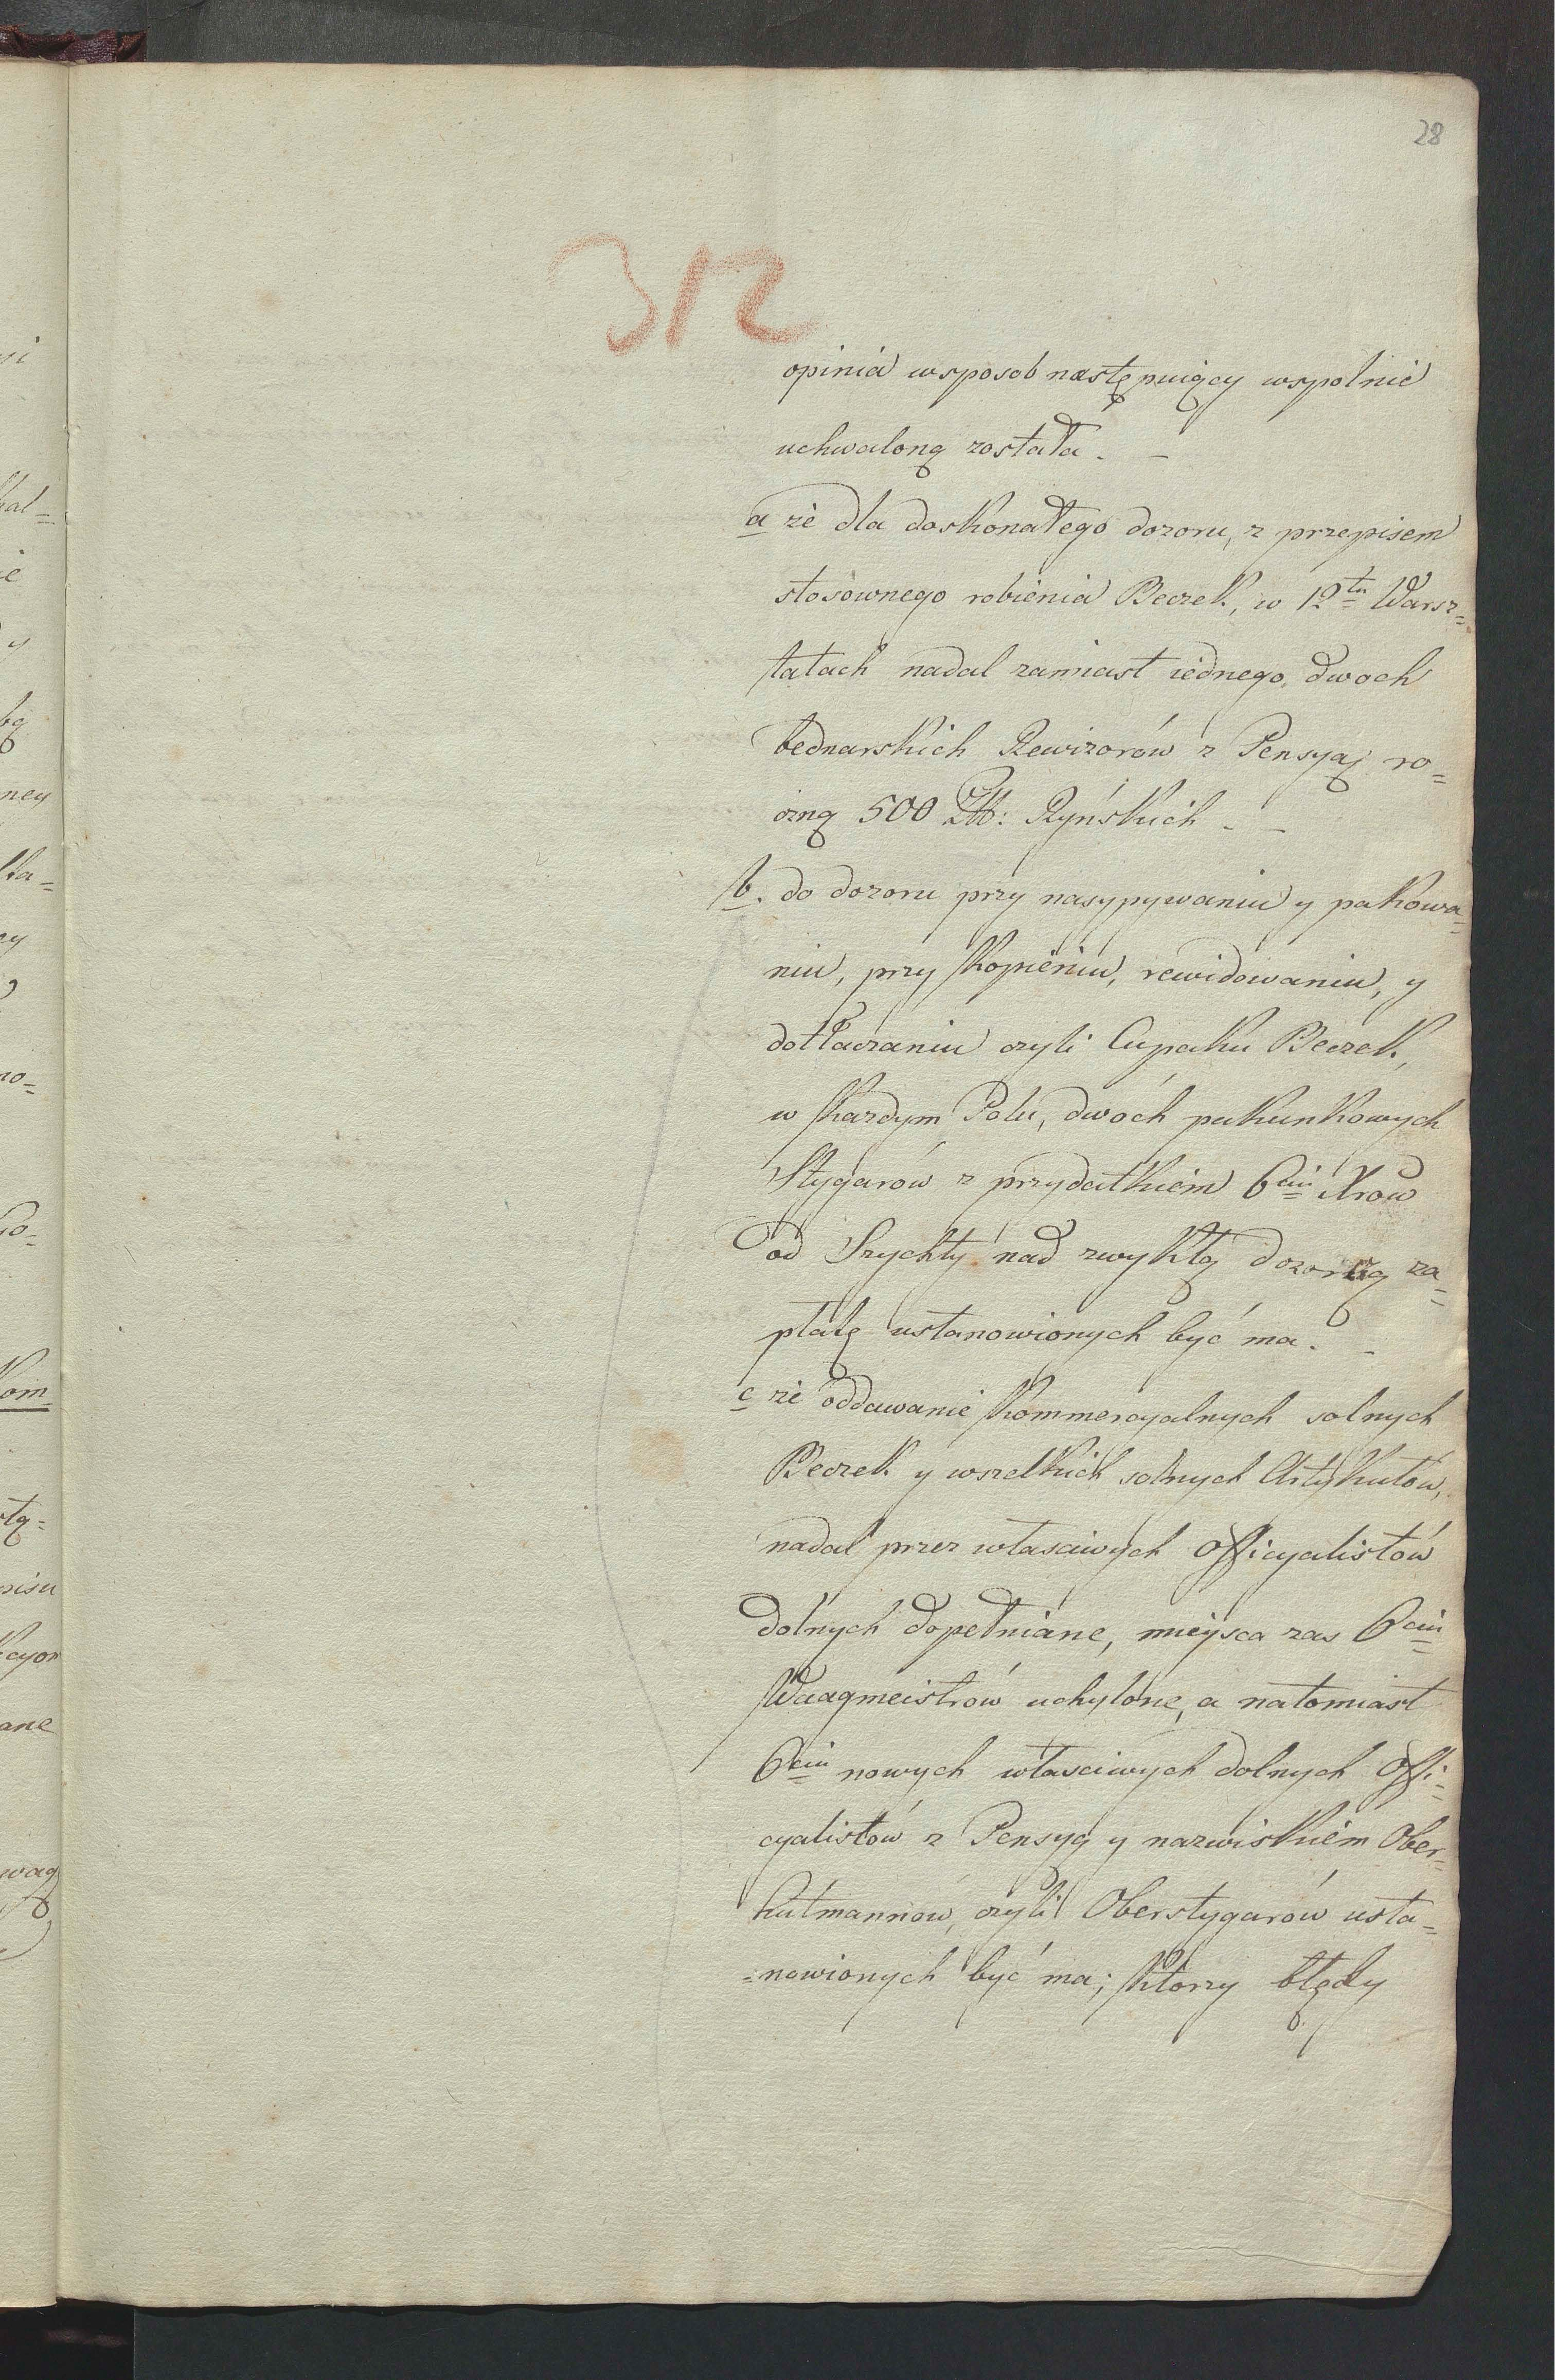 28
312
opinia wsposob następuiący wspolnie
uchwaloną została. –
a że dla doskonałego dozoru, z przepisem
stosownego robienia Beczek, w 12tu Warsz=
tatach nadal zamiast iednego, dwoch
bednarskich Rewizorów z Pensyą ro=
czną 500 Zł: Ryńskich. –
b. do dozoru przy nasypywaniu y pakowa=
niu, przy kopieniu, rewidowaniu, y
dotłaczaniu czyli Cupaku Beczek,
w każdym Polu, dwóch pakunkowych
Stygarów z przydatkiem 6ciu Xrow
od Szychty nad zwykłą dozorczą za=
płatę ustanowionych być ma. –
c że oddawanie kommercyalnych solnych
Beczek y wszelkich solnych Artykułów,
nadal przez własciwych officyalistów
dolnych dopełniane, mieysca zas 6ciu
Waagmeistrów uchylone, a natomiast
6ciu nowych własciwych dolnych offi=
cyalistów z Pensyą y nazwiskiem Ober=
hutmannów, czyli Oberstygarów usta=
=nowionych być ma; ktorzy błędy